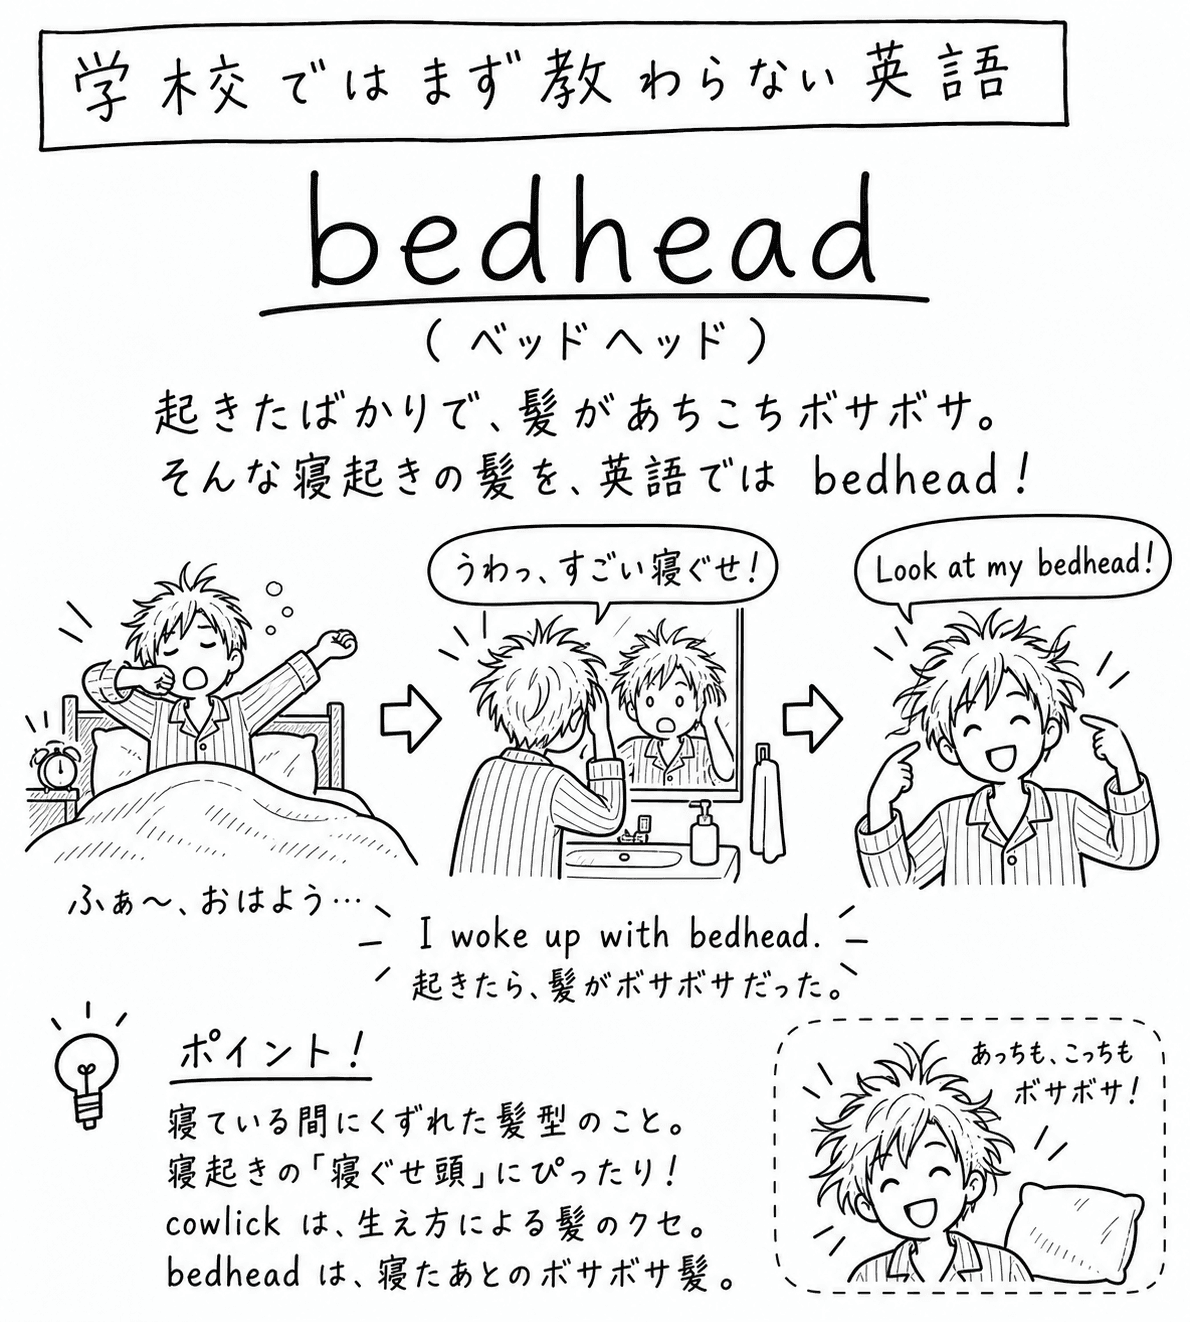 学校ではまず教わらない英語
bedhead
(ベッドヘッド)
起きたばかりで、髪があちこちボサボサ。
そんな寝起きの髪を、英語では bedhead!
うわっ、すごい寝ぐせ!
Look at my bedhead!
ふぁ〜、おはよう…
I woke up with bedhead.
起きたら、髪がボサボサだった。
ポイント!
寝ている間にくずれた髪型のこと。
寝起きの「寝ぐせ頭」にぴったり!
cowlick は、生え方による髪のクセ。
bedhead は、寝たあとのボサボサ髪。
あっちも、こっちも
ボサボサ!